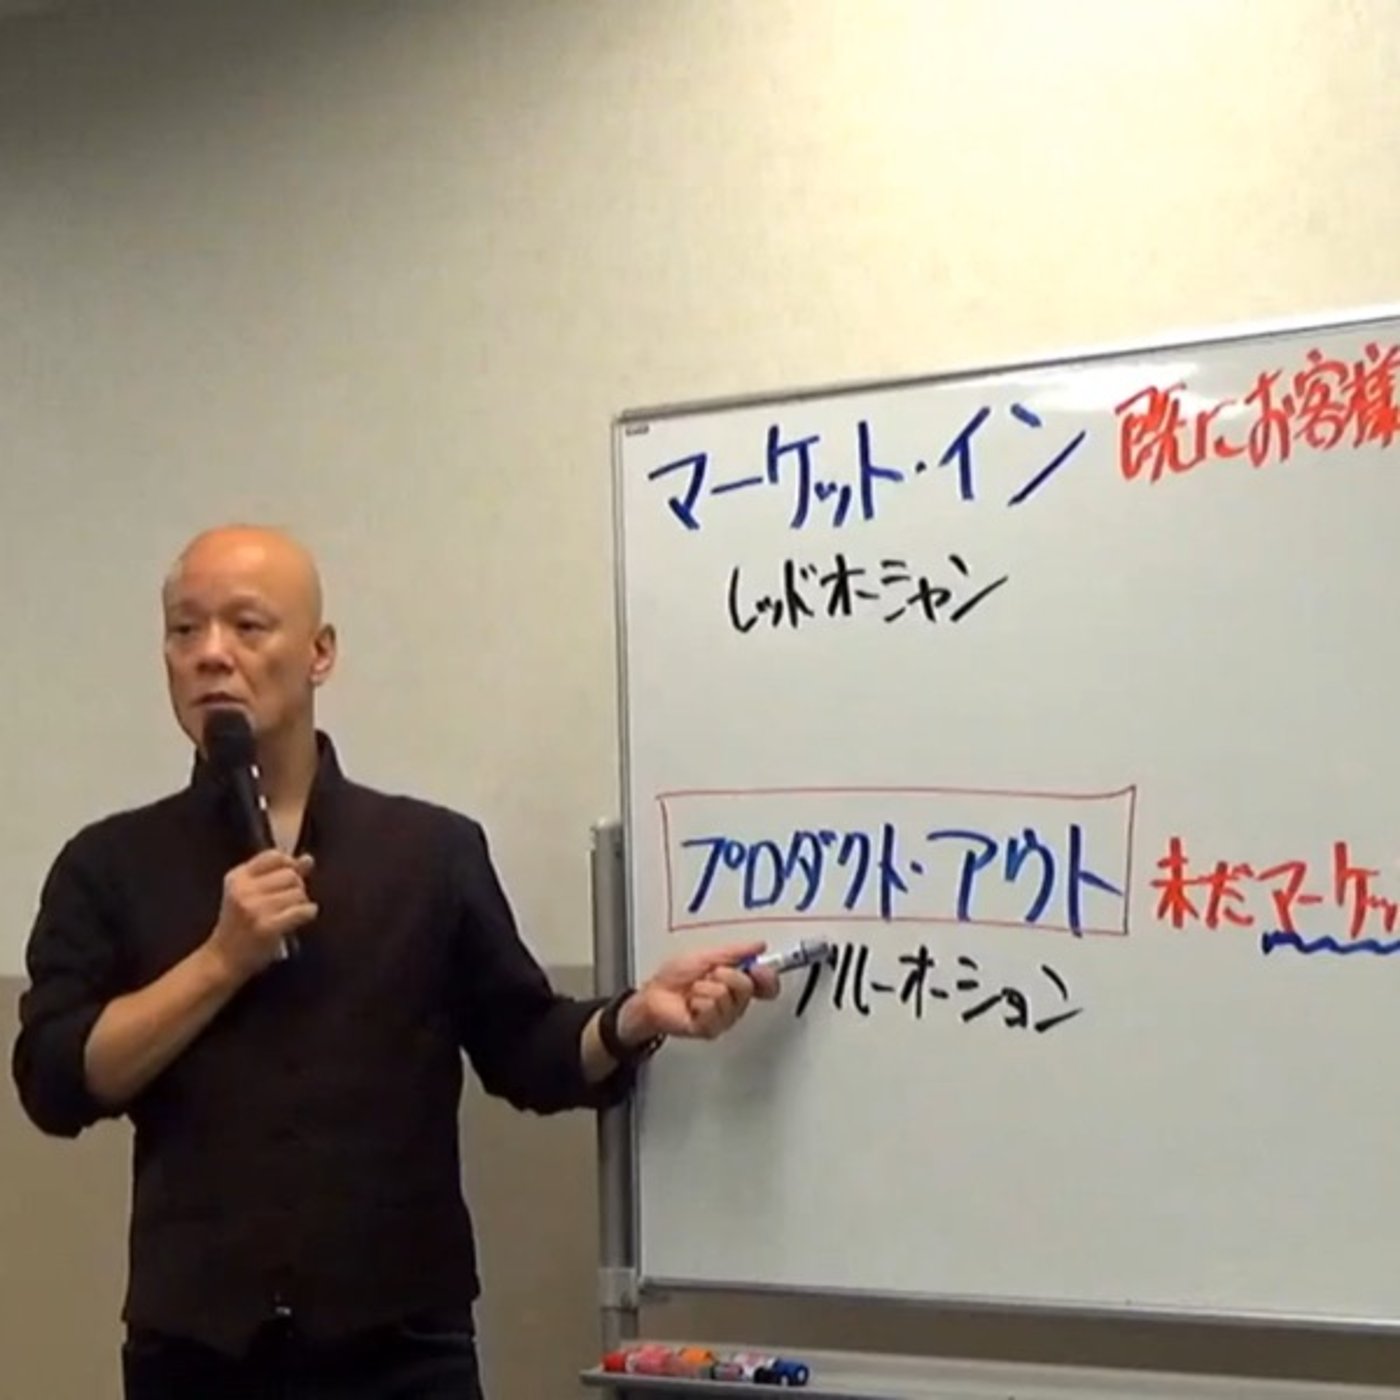 マーケット・イン 既にお客様
レッドオーシャン
プロダクト・アウト 未だマーケッ
ブルーオーション